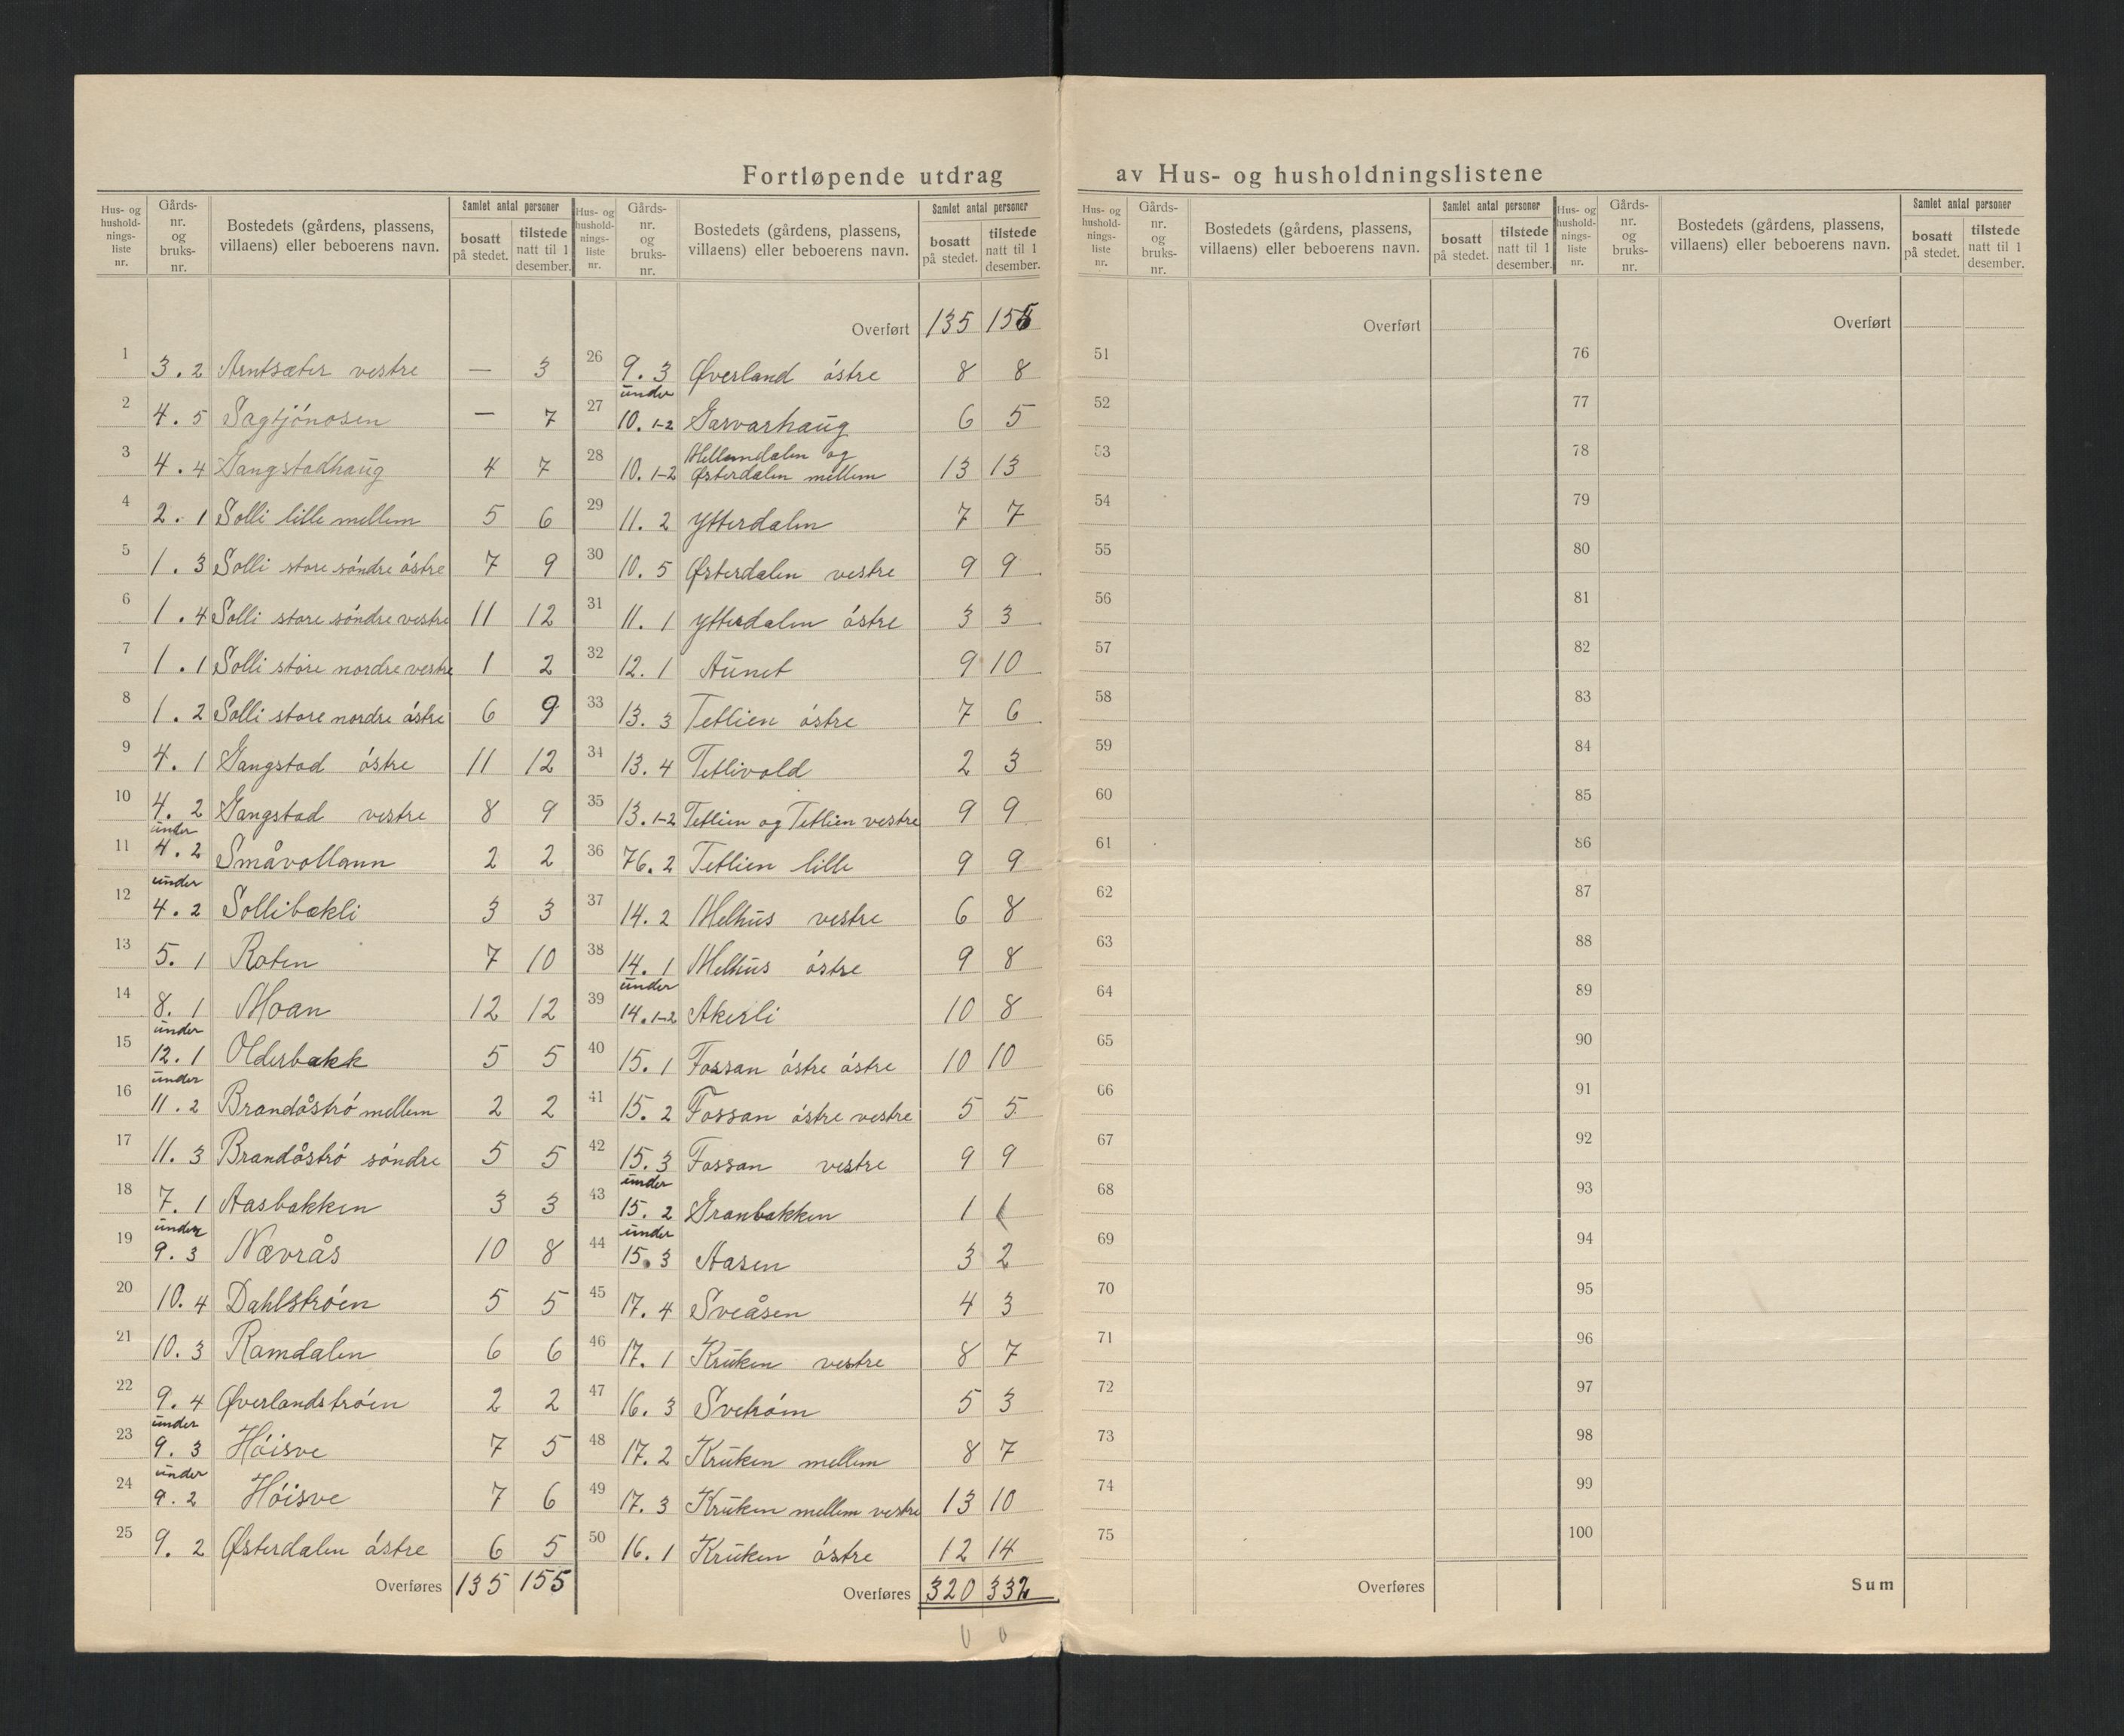 Fortløpende utdrag av Hus- og husholdningslistene
Hus- og hushold-nings-liste nr. Gårds-nr. og bruks-nr. Bostedets (gårdens, plassens, villaens) eller beboerens navn. Samlet antal personer bosatt på stedet. tilstede natt til 1 desember.
1 3.2 Arntsæter vestre — 3
2 4.5 Sagtjónosen — 7
3 4.4 Gangstadhaug 4 7
4 2.1 Solli lille mellem 5 6
5 1.3 Solli store söndre östre 7 9
6 1.4 Solli store söndre vestre 11 12
7 1.1 Solli store nordre vestre 1 2
8 1.2 Solli store nordre östre 6 9
9 4.1 Gangstad östre 11 12
10 4.2 Gangstad vestre 8 9
11 under 4.2 Småvollann 2 2
12 under 4.2 Sollibækli 3 3
13 5.1 Roten 7 10
14 8.1 Moan 12 12
15 under 12.1 Olderbakk 5 5
16 under 11.2 Brandåströ mellem 2 2
17 11.3 Brandåströ söndre 5 5
18 7.1 Aasbakken 3 3
19 under 9.3 Nævrås 10 8
20 10.4 Dahlströen 5 5
21 10.3 Ramdalen 6 6
22 9.4 Øverlandströen 2 2
23 under 9.3 Höisve 7 5
24 under 9.2 Höisve 7 6
25 9.2 Østerdalen östre 6 5
Overføres 135 155
Hus- og hushold-nings-liste nr. Gårds-nr. og bruks-nr. Bostedets (gårdens, plassens, villaens) eller beboerens navn. Samlet antal personer bosatt på stedet. tilstede natt til 1 desember.
Overført 135 155
26 9.3 Øverland östre 8 8
27 under 10.1-2 Garvarhaug 6 5
28 10.1-2 Mellemdalen og Østerdalen mellem 13 13
29 11.2 Ytterdalen 7 7
30 10.5 Østerdalen vestre 9 9
31 11.1 Ytterdalen östre 3 3
32 12.1 Aunet 9 10
33 13.3 Tetlien östre 7 6
34 13.4 Tetlivold 2 3
35 13.1-2 Tetlien og Tetlien vestre 9 9
36 76.2 Tetlien lille 9 9
37 14.2 Melhus vestre 6 8
38 14.1 Melhus östre 9 8
39 under 14.1-2 Akerli 10 8
40 15.1 Fossan östre östre 10 10
41 15.2 Fossan östre vestre 5 5
42 15.3 Fossan vestre 9 9
43 under 15.2 Granbakken 1 1
44 under 15.3 Aasen 3 2
45 17.4 Sveåsen 4 3
46 17.1 Kruken vestre 8 7
47 16.3 Svetröm 5 3
48 17.2 Kruken mellem 8 7
49 17.3 Kruken mellem vestre 13 10
50 16.1 Kruken östre 12 14
Overføres 320 332
Hus- og hushold-nings-liste nr. Gårds-nr. og bruks-nr. Bostedets (gårdens, plassens, villaens) eller beboerens navn. Samlet antal personer bosatt på stedet. tilstede natt til 1 desember.
Overført
51
52
53
54
55
56
57
58
59
60
61
62
63
64
65
66
67
68
69
70
71
72
73
74
75
Overføres
Hus- og hushold-nings-liste nr. Gårds-nr. og bruks-nr. Bostedets (gårdens, plassens, villaens) eller beboerens navn. Samlet antal personer bosatt på stedet. tilstede natt til 1 desember.
Overført
76
77
78
79
80
81
82
83
84
85
86
87
88
89
90
91
92
93
94
95
96
97
98
99
100
Sum